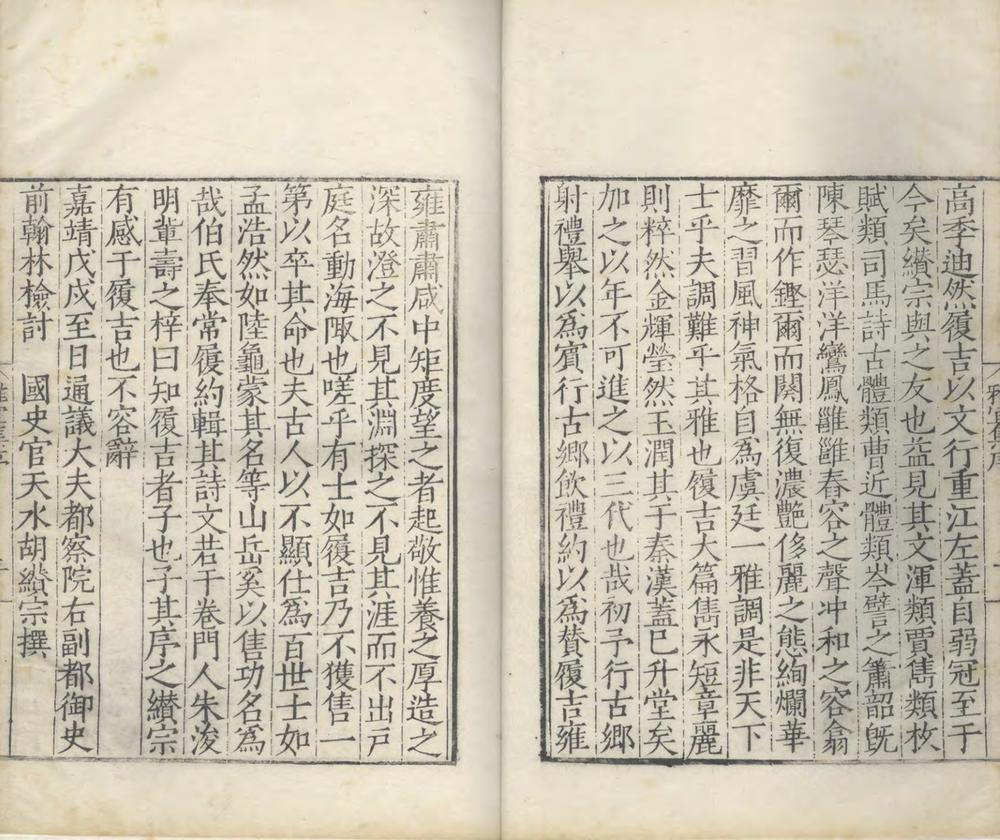 高季迪然履吉以文行重江左蓋自弱冠至于
今矣纘宗與之友也益見其文渾類賈雋類枚
賦類司馬詩古體類曹近體類岑譬之簫韶旣
陳琴瑟洋洋鸞鳳雝雝舂容之聲冲和之容翕
爾而作鏗爾而闋無復濃艷侈麗之態絢爛華
靡之習風神氣格自爲虞廷一雅調是非天下
士乎夫調難乎其雅也履吉大篇雋永短章麗
則粹然金輝瑩然玉潤其于秦漢蓋已升堂矣
加之以年不可進之以三代也哉初予行古鄉
射禮舉以爲賓行古鄉飲禮約以爲贊履吉雍
雍肅肅咸中矩度望之者起敬惟養之厚造之
深故澄之不見其淵探之不見其涯而不出戸
庭名動海陬也嗟乎有士如履吉乃不獲售一
第以卒其命也夫古人以不顯仕爲百世士如
孟浩然如陸龜蒙其名等山岳奚以售功名爲
哉伯氏奉常履約輯其詩文若干卷門人朱浚
明輩壽之梓曰知履吉者子也子其序之纘宗
有感于履吉也不容辭
嘉靖戊戌至日通議大夫都察院右副都御史
前翰林檢討 國史官天水胡纘宗撰